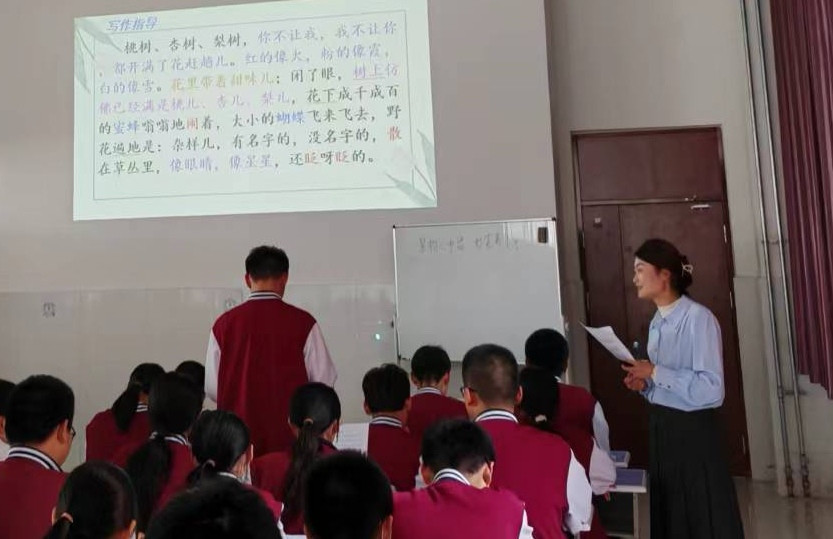 写作指导
桃树、杏树、梨树，你不让我，我不让你
，都开满了花赶趟儿。红的像火，粉的像霞，
白的像雪。花里带着甜味儿；闭了眼，树上仿
佛已经满是桃儿、杏儿、梨儿，花下成千成百
的蜜蜂嗡嗡地闹着，大小的蝴蝶飞来飞去，野
花遍地是：杂样儿，有名字的，没名字的，散
在草丛里，像眼睛，像星星，还眨呀眨的。